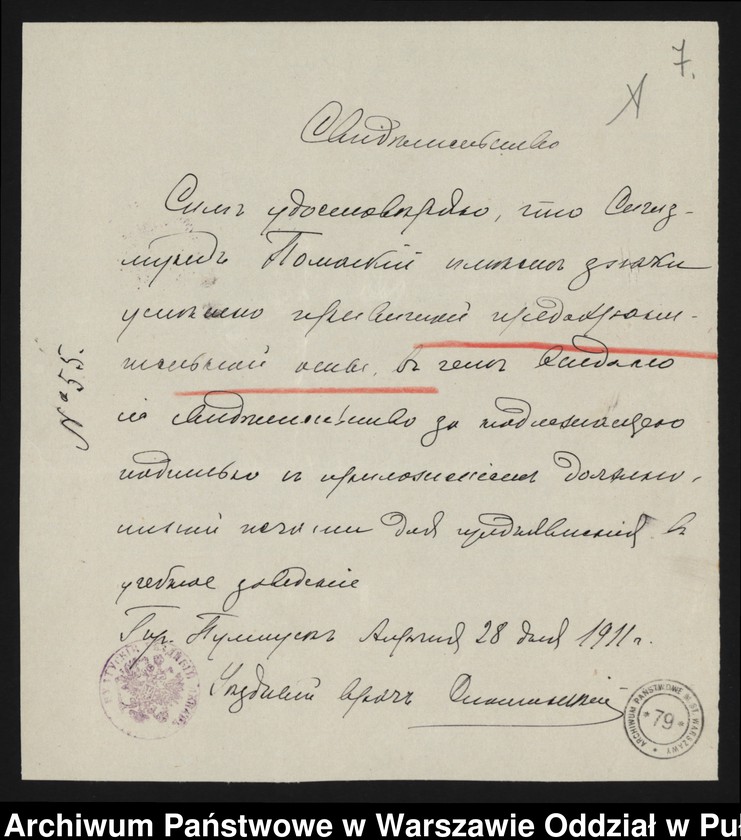 7.
Свидѣтельство
Симъ удостовѣряю, что Сигиз-
мундъ Помаскій имѣетъ знаки
успѣшно привитой предохрани-
тельной оспы, въ чемъ выдано
и свидѣтельство за надлежащею
подписью и приложеніемъ должно-
стной печати для предъявленія въ
учебное заведеніе
Гор. Пултускъ Апрѣля 28 дня 1911 г.
Уѣздный врачъ
№ 55.
ARCHIWUM PAŃSTWOWE M. ST. WARSZAWY
* 79 *
Archiwum Państwowe w Warszawie Oddział w Puł